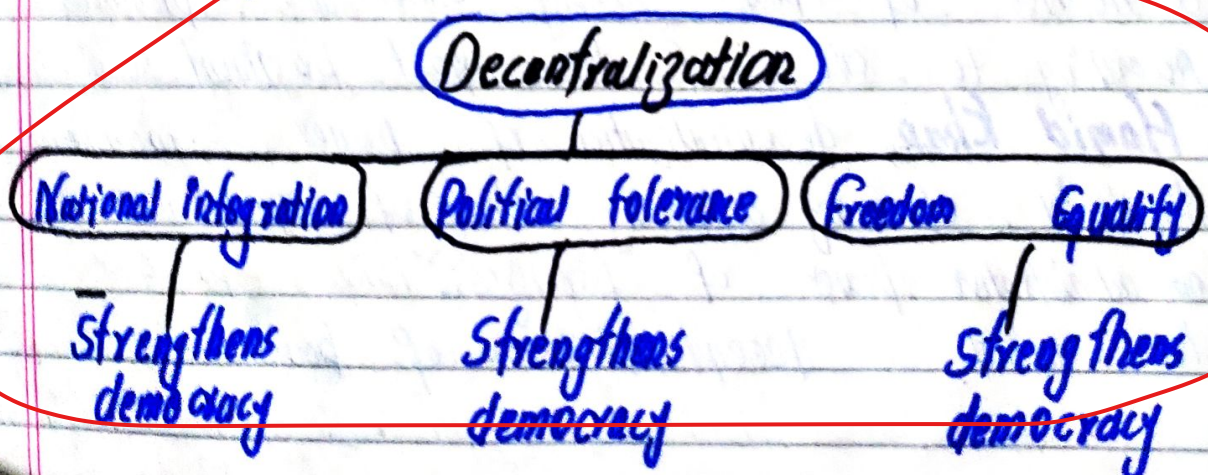 Decentralization
National integration Political tolerance Freedom Equality
Strengthens Strengthens Strengthens
democracy democracy democracy